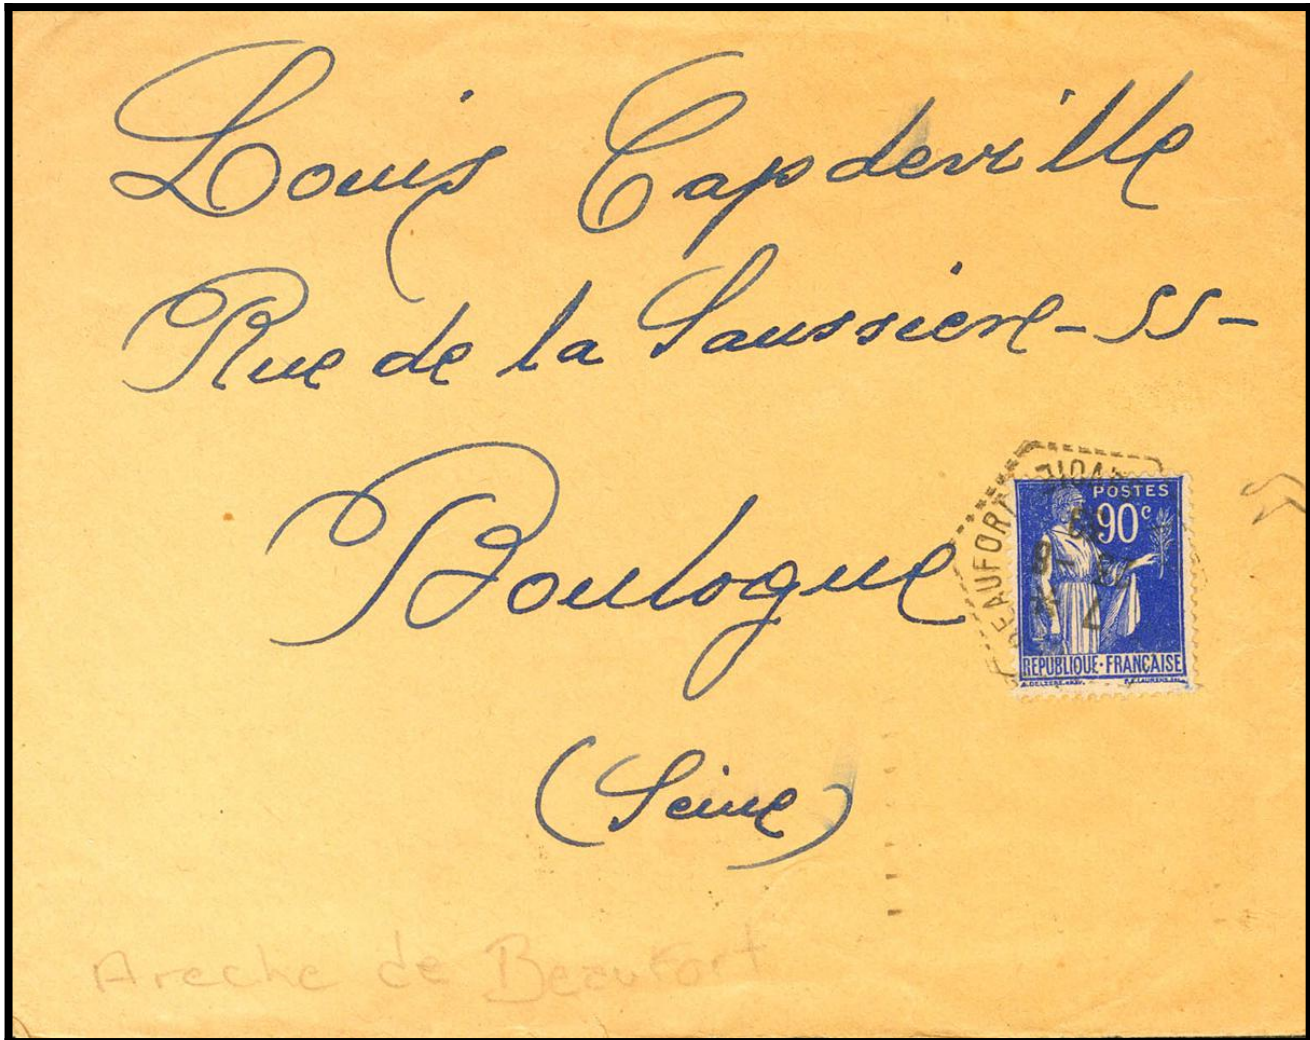 Louis Capdeville
Rue de la Saussiere - 55 -
Boulogne
(Seine)
POSTES
90c
REPUBLIQUE·FRANÇAISE
BEAUFORT
Areche de Beaufort